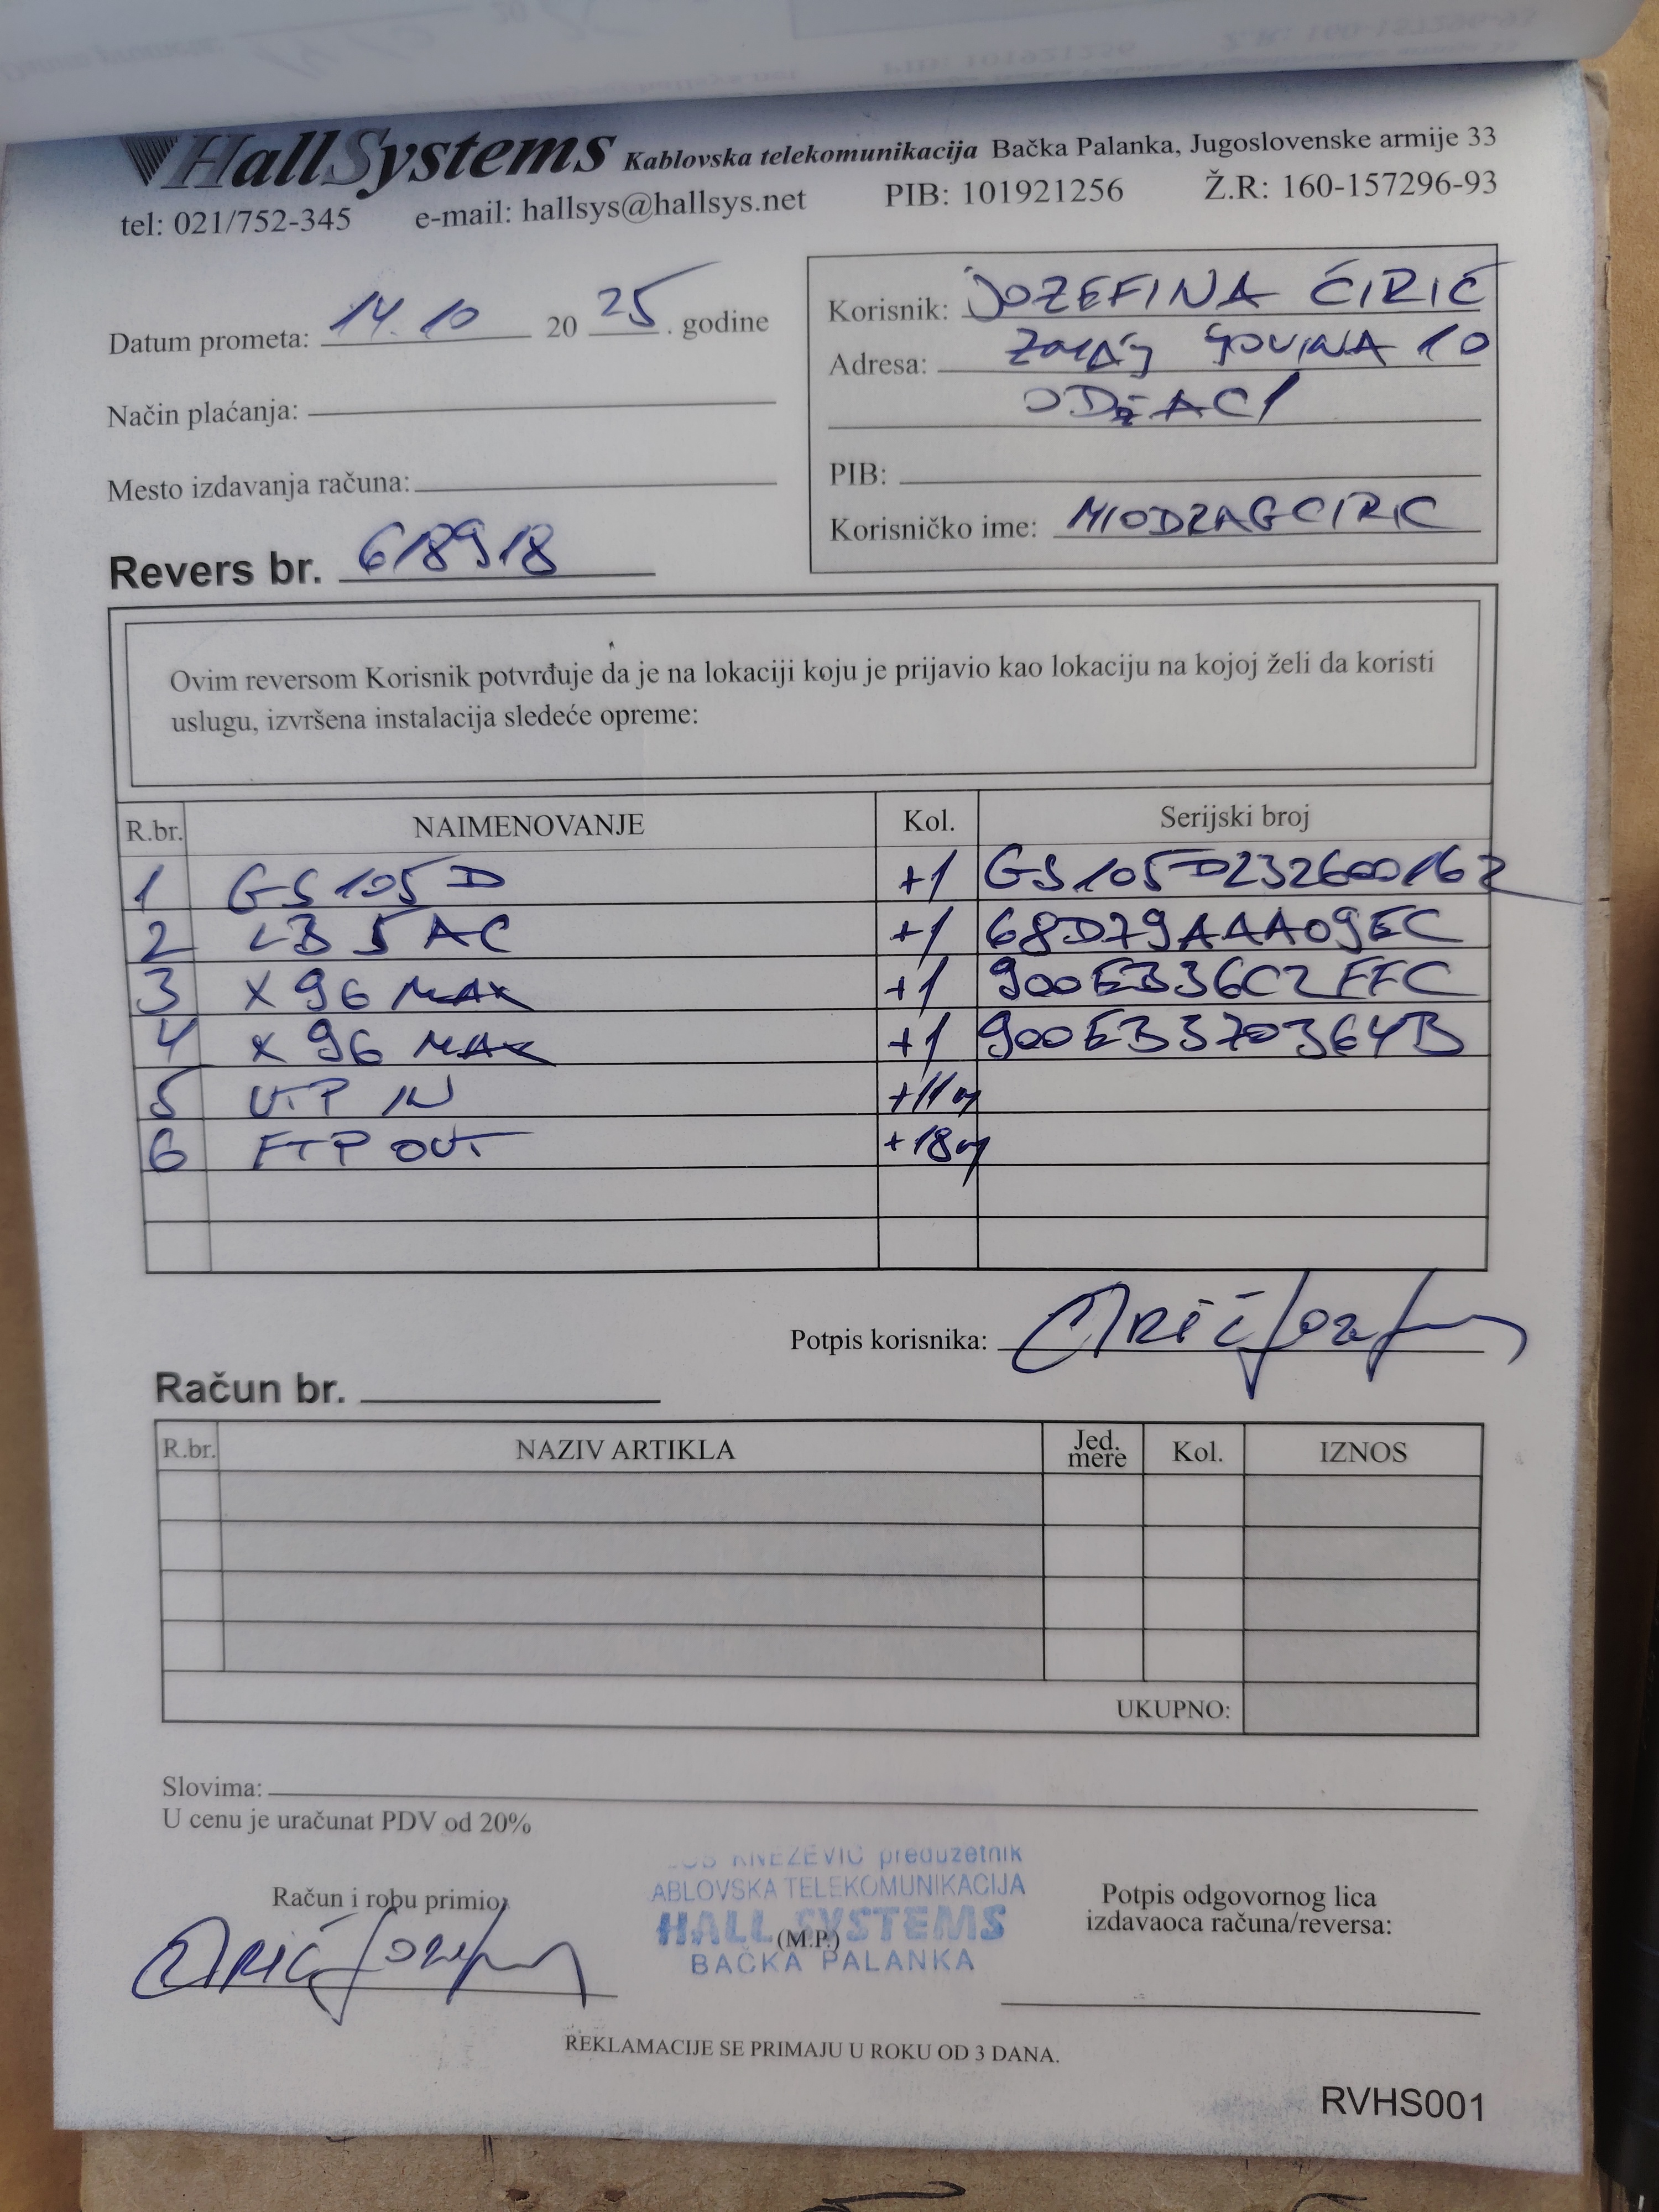 HallSystems Kablovska telekomunikacija Bačka Palanka, Jugoslovenske armije 33
tel: 021/752-345 e-mail: hallsys@hallsys.net PIB: 101921256 Ž.R: 160-157296-93
Datum prometa: 14.10 2025. godine
Način plaćanja:
Mesto izdavanja računa:
Revers br. 618918
Korisnik: JOZEFINA ĆIRIĆ
Adresa: ZMAJ JOVINA 10
ODŽACI
PIB:
Korisničko ime: MIODRAGCIRIC
Ovim reversom Korisnik potvrđuje da je na lokaciji koju je prijavio kao lokaciju na kojoj želi da koristi
uslugu, izvršena instalacija sledeće opreme:
R.br. NAIMENOVANJE Kol. Serijski broj
1 GS105D +1 GS105D232600162
2 LB 5 AC +1 68D79AAA09EC
3 X96 MAX +1 900EB36C2FFC
4 X96 MAX +1 900EB370364B
5 UTP IN +11m
6 FTP OUT +18m
Potpis korisnika: Ćirić Jozef
Račun br.
R.br. NAZIV ARTIKLA Jed. mere Kol. IZNOS
UKUPNO:
Slovima:
U cenu je uračunat PDV od 20%
KNEŽEVIĆ preduzetnik
ABLOVSKA TELEKOMUNIKACIJA
HALL SYSTEMS
(M.P.)
BAČKA PALANKA
Račun i robu primio:
Ćirić Jozef
Potpis odgovornog lica
izdavaoca računa/reversa:
REKLAMACIJE SE PRIMAJU U ROKU OD 3 DANA.
RVHS001